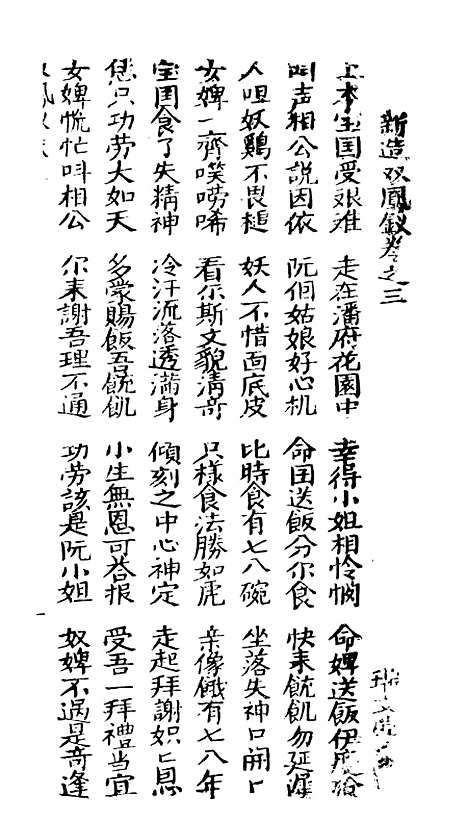 新造双鳳釵卷之三
上本生囯受艰难 走在潘府花園中 幸得小姐相怜悯 命婢送飯伊
声相公説因依 阮個姑娘好心机 命囯送飯分尔食 快来饒飢勿延
人咀奴鷄不畏槌 妖人不惜面底皮 比時食有七八碗 坐落失神口開ヒ
女婢一齊唉唠唏 看尔斯文貌清奇 只樣食法勝如虎 亲像餓有七八年
宝囯食了失精神 冷汗流落透滿身 傾刻之中心神定 走起拜謝姒ヒ恩
恁只功劳大如天 多蒙賜飯吾饒飢 小生無恩可荅报 受吾一拜禮当宜
女婢慌忙叫相公 尔来謝吾理不通 功劳該是阮小姐 奴婢不過是奇逢